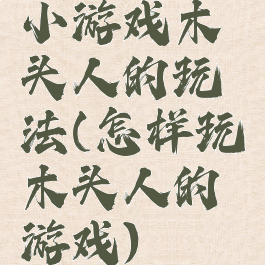 小游戏木
头人的玩
法(怎样玩
木头人的
游戏)